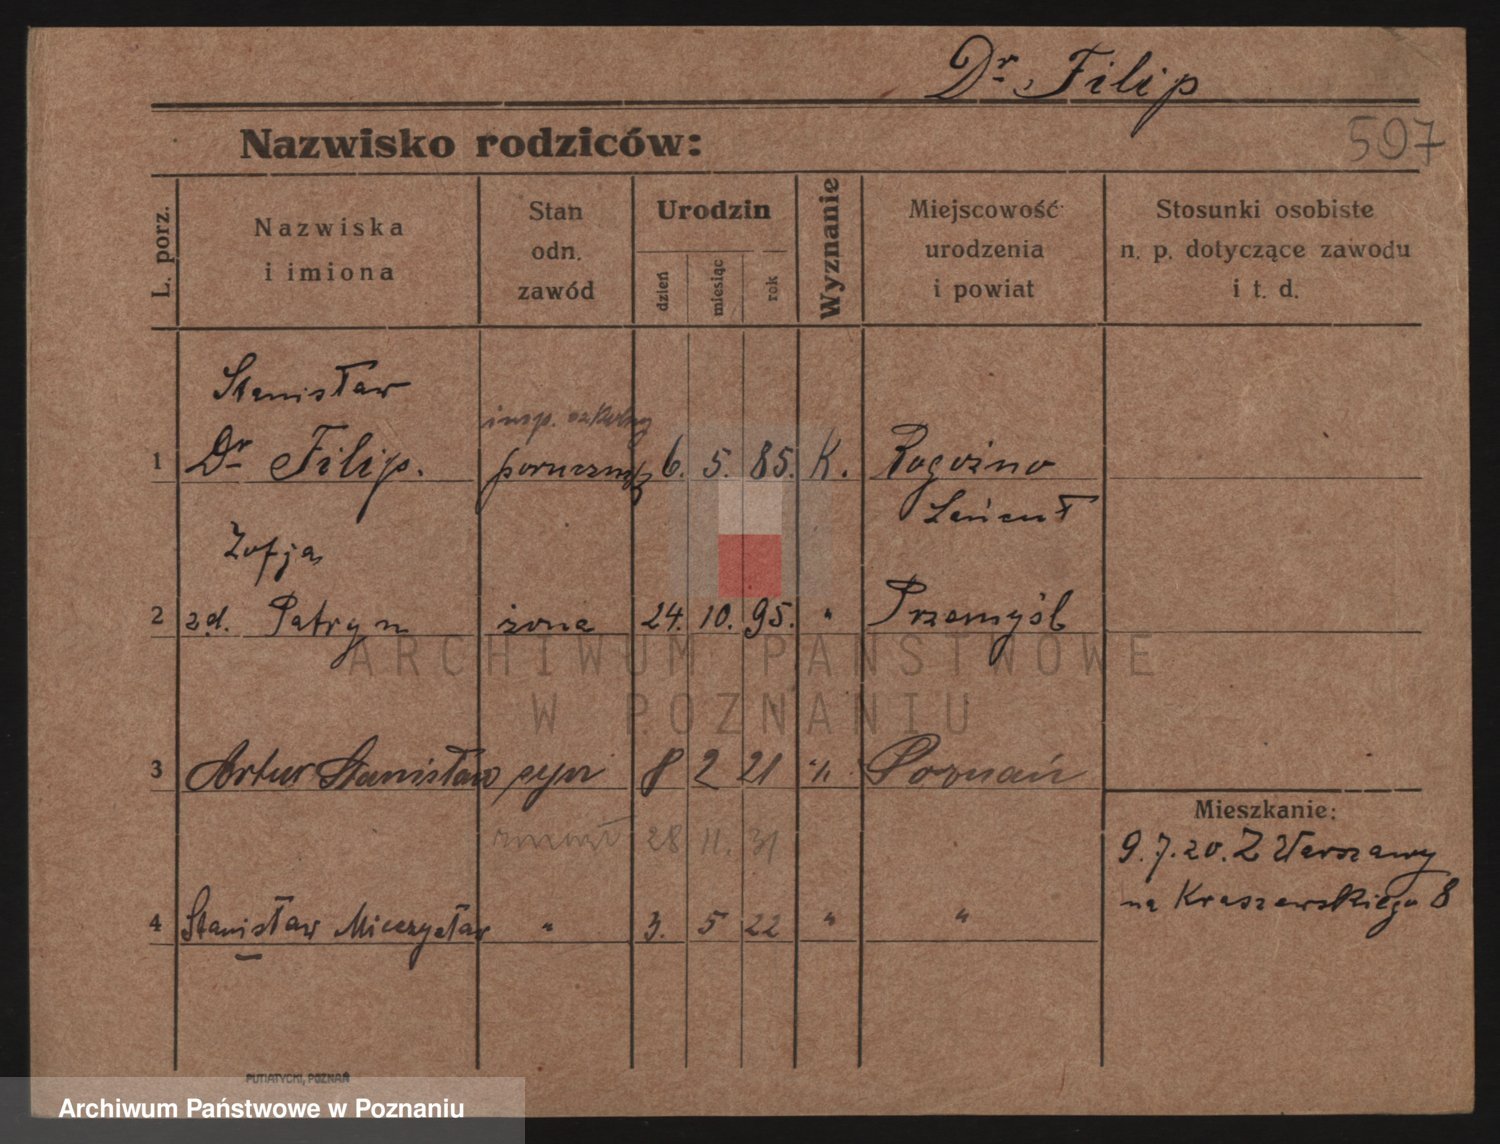 Dr. Filip
Nazwisko rodziców:
507
L. porz.
Nazwiska
i imiona
Stan
odn.
zawód
Urodzin
dzień
miesiąc
rok
Wyznanie
Miejscowość
urodzenia
i powiat
Stosunki osobiste
n. p. dotyczące zawodu
i t. d.
Stanisław
insp. szkolny
1 Dr Filip. porucznik 6. 5. 85. K. Rogóżno
Łańcut
Zofja
2 zd. Patryn żona 24. 10. 95. " Przemyśl
ARCHIWUM PAŃSTWOWE
W POZNANIU
3 Artur Stanisław syn 8 2 21 " Poznań
Mieszkanie:
zmarł 28 11. 31
9.7.20. Z Warszawy
na Kraszewskiego 8
4 Stanisław Mieczysław " 3. 5 22 " "
PUTIATYCKI, POZNAŃ
Archiwum Państwowe w Poznaniu